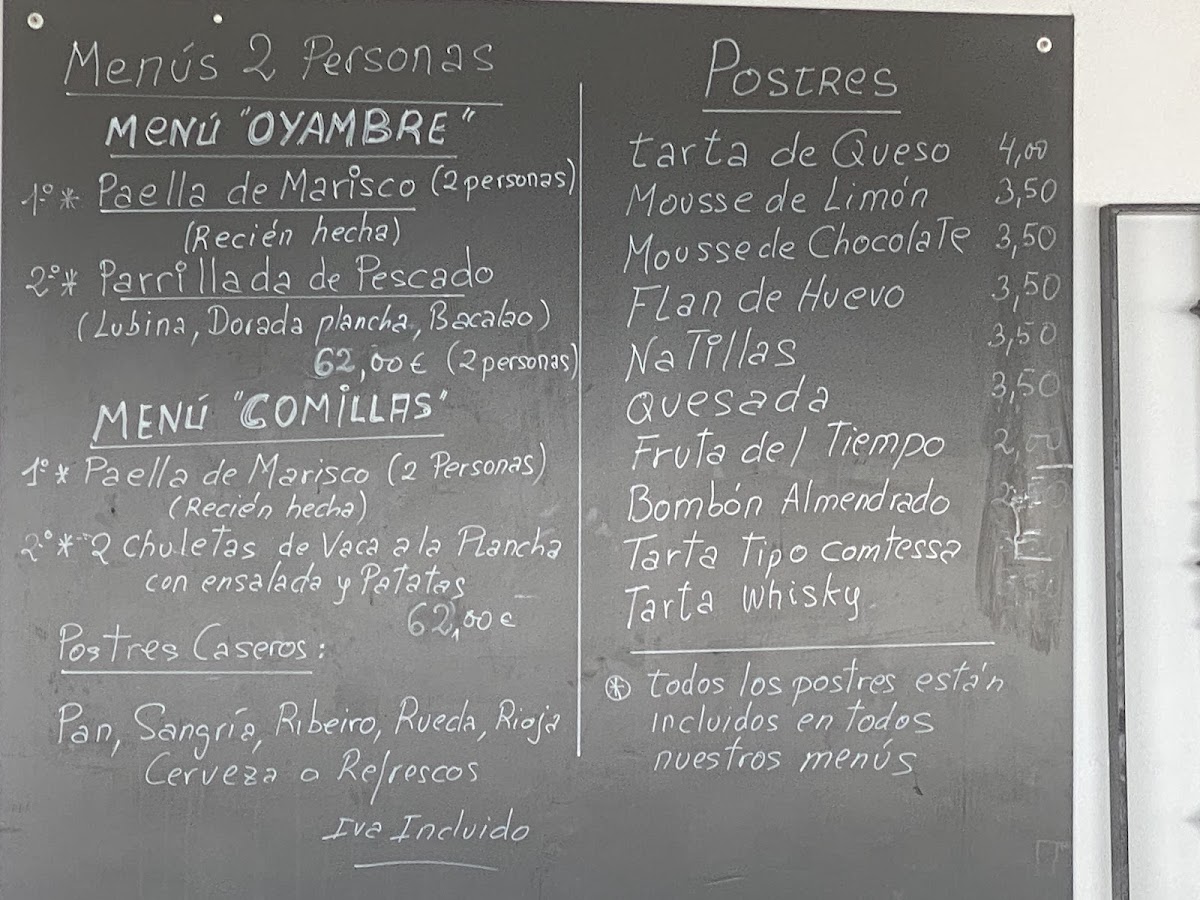 Menús 2 Personas
MENÚ "OYAMBRE"
1º * Paella de Marisco (2 personas)
(Recién hecha)
2º * Parrillada de Pescado
(Lubina, Dorada plancha, Bacalao)
62,00 € (2 personas)
MENÚ "COMILLAS"
1º * Paella de Marisco (2 Personas)
(Recién hecha)
2º * 2 Chuletas de Vaca a la Plancha
con ensalada y Patatas
62,00 €
Postres Caseros:
Pan, Sangría, Ribeiro, Rueda, Rioja
Cerveza o Refrescos
Iva Incluido
Postres
tarta de Queso 4,00
Mousse de Limón 3,50
Mousse de Chocolate 3,50
Flan de Huevo 3,50
Natillas 3,50
Quesada 3,50
Fruta del Tiempo
Bombón Almendrado
Tarta Tipo comtessa
Tarta whisky
* todos los postres están
incluidos en todos
nuestros menús